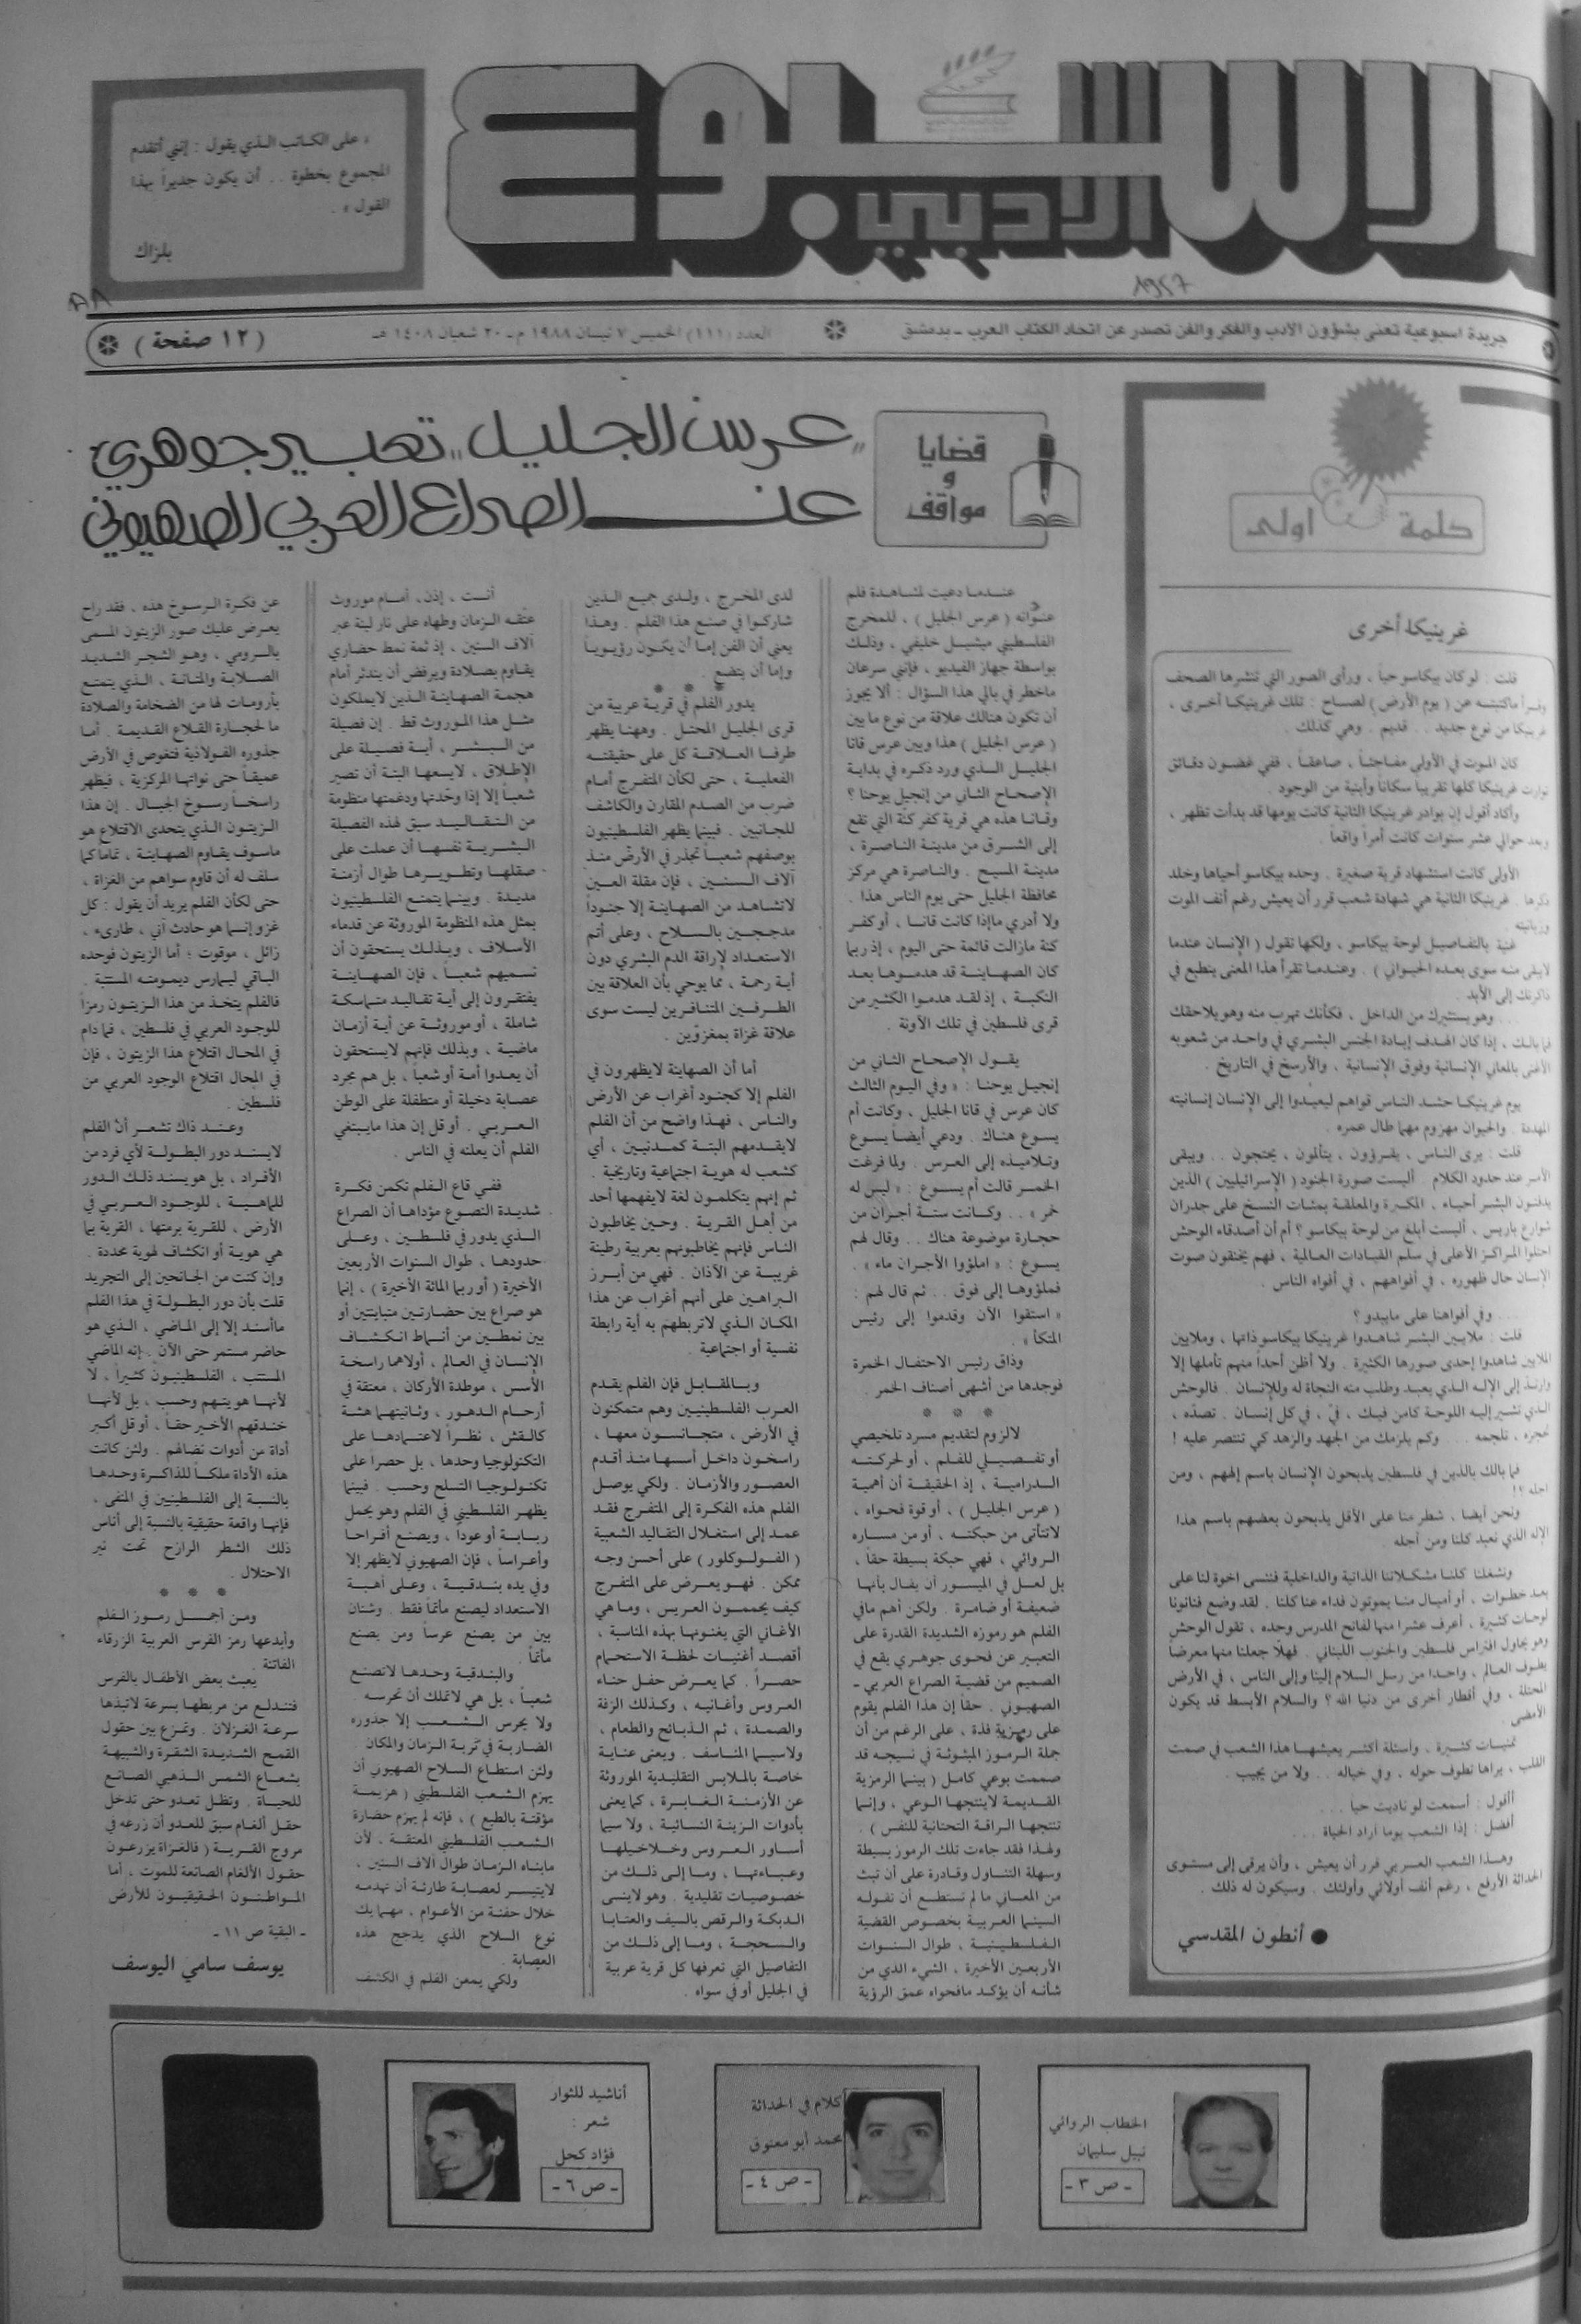 الأسبوع الأدبي
« على الكاتب الذي يقول : إنني أتقدم
المجموع بخطوة . . أن يكون جديراً بهذا
القول » .
بلزاك
٨٨
١٩٥٧
جريدة اسبوعية تعنى بشؤون الأدب والفكر والفن تصدر عن اتحاد الكتاب العرب - بدمشق
العدد (١١١) الخميس ٧ نيسان ١٩٨٨ م - ٢٠ شعبان ١٤٠٨ هـ
( ١٢ صفحة )
كلمة أولى
غرينيكا أخرى
قلت : لو كان بيكاسو حياً ، ورأى الصور التي تنشرها الصحف
وقرأ ماكتبته عن ( يوم الأرض ) لصاح : تلك غرينيكا أخرى ،
غرينيكا من نوع جديد . . قديم . وهي كذلك .
كان الموت في الأولى مفاجئاً ، صاعقاً ، ففي غضون دقائق
توارت غرينيكا كلها تقريبا سكاناً وأبنية من الوجود .
وأكاد أقول إن بوادر غرينيكا الثانية كانت يومها قد بدأت تظهر ،
وبعد حوالي عشر سنوات كانت أمراً واقعاً .
الأولى كانت استشهاد قرية صغيرة . وحده بيكاسو أحياها وخلد
ذكرها . غرينيكا الثانية هي شهادة شعب قرر أن يعيش رغم أنف الموت
وزبانيته .
غنية بالتفاصيل لوحة بيكاسو ، ولكها تقول ( الإنسان عندما
لايبقى منه سوى بعده الحيواني ) . وعندما تقرأ هذا المعنى ينطبع في
ذاكرتك إلى الأبد .
. . . وهو يستثيرك من الداخل ، فكأنك تهرب منه وهو يلاحقك
فما بالك ، إذا كان الهدف إبادة الجنس البشري في واحد من شعوبه
الأغنى بالمعاني الإنسانية وفوق الإنسانية ، والأرسخ في التاريخ .
يوم غرينيكا حشد الناس قواهم ليعيدوا إلى الإنسان إنسانيته
المهددة . والحيوان مهزوم مهما طال عمره .
قلت : يرى الناس ، يقرؤون ، يتألمون ، يحتجون . . ويبقى
الأمر عند حدود الكلام . أليست صورة الجنود ( الإسرائيليين ) الذين
يدفنون البشر أحياء ، المكبرة والمعلقة بمئات النسخ على جدران
شوارع باريس ، أليست أبلغ من لوحة بيكاسو ؟ أم أن أصدقاء الوحش
احتلوا المراكز الأعلى في سلم القيادات العالمية ، فهم يخنقون صوت
الإنسان حال ظهوره ، في أفواههم ، في أفواه الناس .
. . . وفي أفواهنا على مايبدو ؟
قلت : ملايين البشر شاهدوا غرينيكا بيكاسو ذاتها ، وملايين
الملايين شاهدوا إحدى صورها الكثيرة . ولا أظن أحداً منهم تأملها إلا
وارتد إلى الإله الذي يعبد وطلب منه النجاة له وللإنسان . فالوحش
الذي تشير إليه اللوحة كامن فيك ، فيّ ، في كل إنسان . تصدّه ،
تحجره ، تلجمه . . . وكم يلزمك من الجهد والزهد كي تنتصر عليه !
فما بالك بالذين في فلسطين يذبحون الإنسان باسم إلههم ، ومن
اجله ؟!
ونحن أيضا ، شطر منا على الأقل يذبحون بعضهم باسم هذا
الإله الذي نعبد كلنا ومن أجله .
وتشغلنا كلنا مشكلاتنا الذاتية والداخلية فننسى اخوة لنا على
بعد خطوات ، أو أميال منا يموتون فداء عنا كلنا . لقد وضع فنانونا
لوحات كثيرة ، أعرف عشرا منها لفاتح المدرس وحده ، تقول الوحش
وهو يحاول افتراس فلسطين والجنوب اللبناني . فهلّا جعلنا منها معرضا
يطوف العالم ، واحدا من رسل السلام إلينا وإلى الناس ، في الأرض
المحتلة ، وفي أقطار أخرى من دنيا الله ؟ والسلام الأبسط قد يكون
الأمضى .
تمنيات كثيرة ، وأسئلة أكثر يعيشها هذا الشعب في صمت
القلب ، يراها تطوف حوله ، وفي خياله . . ولا من يجيب .
أأقول : أسمعت لو ناديت حيا . . .
أفضل : إذا الشعب يوما أراد الحياة . . .
وهذا الشعب العربي قرر أن يعيش ، وأن يرقى إلى مستوى
الحداثة الأرفع ، رغم أنف أولائي وأولئك . وسيكون له ذلك .
● أنطون المقدسي
قضايا
و
مواقف
« عرس الجليل » تعبير جوهري
عن الصراع العربي الصهيوني
عندما دعيت لمشاهدة فلم
عنوانه ( عرس الجليل ) ، للمخرج
الفلسطيني ميشيل خليفي ، وذلك
بواسطة جهاز الفيديو ، فإنني سرعان
ماخطر في بالي هذا السؤال : ألا يجوز
أن تكون هنالك علاقة من نوع ما بين
( عرس الجليل ) هذا وبين عرس قانا
الجليل الذي ورد ذكره في بداية
الإصحاح الثاني من إنجيل يوحنا ؟
وقانا هذه هي قرية كفر كنة التي تقع
إلى الشرق من مدينة الناصرة ،
مدينة المسيح . والناصرة هي مركز
محافظة الجليل حتى يوم الناس هذا .
ولا أدري ماإذا كانت قانا ، أو كفر
كنة مازالت قائمة حتى اليوم ، إذ ربما
كان الصهاينة قد هدموها بعد
النكبة ، إذ لقد هدموا الكثير من
قرى فلسطين في تلك الآونة .
يقول الإصحاح الثاني من
إنجيل يوحنا : « وفي اليوم الثالث
كان عرس في قانا الجليل ، وكانت أم
يسوع هناك . ودعي أيضاً يسوع
وتلاميذه إلى العرس . ولما فرغت
الخمر قالت أم يسوع : « ليس له
خمر » . . وكانت ستة أجران من
حجارة موضوعة هناك . . وقال لهم
يسوع : « املؤوا الأجران ماء » .
فملؤوها إلى فوق . . ثم قال لهم :
« استقوا الآن وقدموا إلى رئيس
المتكأ » .
وذاق رئيس الاحتفال الخمرة
فوجدها من أشهى أصناف الخمر .
* * *
لالزوم لتقديم مسرد تلخيصي
أو تفصيلي للفلم ، أو لحركته
الدرامية ، إذ الحقيقة أن أهمية
( عرس الجليل ) ، أو قوة فحواه ،
لاتتأتى من حبكته ، أو من مساره
الروائي ، فهي حبكة بسيطة حقاً ،
بل لعل في الميسور أن يقال بأنها
ضعيفة أو ضامرة . ولكن أهم مافي
الفلم هو رموزه الشديدة القدرة على
التعبير عن فحوى جوهري يقع في
الصميم من قضية الصراع العربي -
الصهيوني . حقاً إن هذا الفلم يقوم
على رمزية فذة ، على الرغم من أن
جملة الرموز المبثوثة في نسيجه قد
صممت بوعي كامل ( بينما الرمزية
القديمة لاينتجها الوعي ، وإنما
تنتجها الراقة التحتانية للنفس ) .
ولهذا فقد جاءت تلك الرموز بسيطة
وسهلة التناول وقادرة على أن تبث
من المعاني ما لم تستطع أن تقوله
السينما العربية بخصوص القضية
الفلسطينية ، طوال السنوات
الأربعين الأخيرة ، الشيء الذي من
شأنه أن يؤكد مافحواه عمق الرؤية
لدى المخرج ، ولدى جميع الذين
شاركوا في صنع هذا الفلم . وهذا
يعني أن الفن إما أن يكون رؤيوياً
وإما أن يتضع .
* * *
يدور الفلم في قرية عربية من
قرى الجليل المحتل . وههنا يظهر
طرفا العلاقة كل على حقيقته
الفعلية ، حتى لكأن المتفرج أمام
ضرب من الصدم المقارن والكاشف
للجانبين . فبينما يظهر الفلسطينيون
بوصفهم شعباً تجذر في الأرض منذ
آلاف السنين ، فإن مقلة العين
لاتشاهد من الصهاينة إلا جنوداً
مدججين بالسلاح ، وعلى أتم
الاستعداد لإراقة الدم البشري دون
أية رحمة ، مما يوحي بأن العلاقة بين
الطرفين المتنافرين ليست سوى
علاقة غزاة بمغزوّين .
أما أن الصهاينة لايظهرون في
الفلم إلا كجنود أغراب عن الأرض
والناس ، فهذا واضح من أن الفلم
لايقدمهم البتة كمدنيين ، أي
كشعب له هوية اجتماعية وتاريخية .
ثم إنهم يتكلمون لغة لايفهمها أحد
من أهل القرية . وحين يخاطبون
الناس فإنهم يخاطبونهم بعربية رطينة
غريبة عن الآذان . فهي من أبرز
البراهين على أنهم أغراب عن هذا
المكان الذي لاتربطهم به أية رابطة
نفسية أو اجتماعية .
وبالمقابل فإن الفلم يقدم
العرب الفلسطينيين وهم متمكنون
في الأرض ، متجانسون معها ،
راسخون داخل أسها منذ أقدم
العصور والأزمان . ولكي يوصل
الفلم هذه الفكرة إلى المتفرج فقد
عمد إلى استغلال التقاليد الشعبية
( الفولوكلور ) على أحسن وجه
ممكن . فهو يعرض على المتفرج
كيف يحممون العريس ، وما هي
الأغاني التي يغنونها بهذه المناسبة ،
أقصد أغنيات لحظة الاستحمام
حصراً . كما يعرض حفل حناء
العروس وأغانيه ، وكذلك الزفة
والصمدة ، ثم الذبائح والطعام ،
ولاسيما المناسف . ويعنى عناية
خاصة بالملابس التقليدية الموروثة
عن الأزمنة الغابرة ، كما يعنى
بأدوات الزينة النسائية ، ولا سيما
أساور العروس وخلاخيلها
وعباءتها ، وما إلى ذلك من
خصوصيات تقليدية . وهو لاينسى
الدبكة والرقص بالسيف والعتابا
والسحجة ، وما إلى ذلك من
التفاصيل التي تعرفها كل قرية عربية
في الجليل أو في سواه .
أنت ، إذن ، أمام موروث
عتّقه الزمان وطهاه على نار لينة عبر
آلاف السنين ، إذ ثمة نمط حضاري
يقاوم بصلادة ويرفض أن يندثر أمام
هجمة الصهاينة الذين لايملكون
مثل هذا الموروث قط . إن فصيلة
من البشر ، أية فصيلة على
الإطلاق ، لايسعها البتة أن تصير
شعباً إلا إذا وحّدتها ودغمتها منظومة
من التقاليد سبق لهذه الفصيلة
البشرية نفسها أن عملت على
صقلها وتطويرها طوال أزمنة
مديدة . وبينما يتمتع الفلسطينيون
بمثل هذه المنظومة الموروثة عن قدماء
الأسلاف ، وبذلك يستحقون أن
تسميهم شعباً ، فإن الصهاينة
يفتقرون إلى أية تقاليد متماسكة
شاملة ، أو موروثة عن أية أزمان
ماضية ، وبذلك فإنهم لايستحقون
أن يعدوا أمة أو شعباً ، بل هم مجرد
عصابة دخيلة أو متطفلة على الوطن
العربي . أو قل إن هذا مايبتغي
الفلم أن يعلنه في الناس .
ففي قاع الفلم تكمن فكرة
شديدة النصوع مؤداها أن الصراع
الذي يدور في فلسطين ، وعلى
حدودها ، طوال السنوات الأربعين
الأخيرة ( أو ربما المائة الأخيرة ) ، إنما
هو صراع بين حضارتين متباينتين أو
بين نمطين من أنماط انكشاف
الإنسان في العالم ، أولاهما راسخة
الأسس ، موطدة الأركان ، معتقة في
أرحام الدهور ، وثانيتهما هشة
كالقش ، نظراً لاعتمادها على
التكنولوجيا وحدها ، بل حصراً على
تكنولوجيا التسلح وحسب . فبينما
يظهر الفلسطيني في الفلم وهو يحمل
ربابة أو عوداً ، ويصنع أفراحا
وأعراساً ، فإن الصهيوني لايظهر إلا
وفي يده بندقية ، وعلى أهبة
الاستعداد ليصنع مأتماً فقط . وشتان
بين من يصنع عرساً ومن يصنع
مأتماً .
والبندقية وحدها لاتصنع
شعباً ، بل هي لاتملك أن تحرسه .
ولا يحرس الشعب إلا جذوره
الضاربة في تربة الزمان والمكان .
ولئن استطاع السلاح الصهيوني أن
يهزم الشعب الفلسطيني ( هزيمة
مؤقتة بالطبع ) ، فإنه لم يهزم حضارة
الشعب الفلسطيني المعتقة ، لأن
مابناه الزمان طوال آلاف السنين ،
لايتيسر لعصابة طارئة أن تهدمه
خلال حفنة من الأعوام ، مهما يك
نوع السلاح الذي يدجج هذه
العصابة .
ولكي يمعن الفلم في الكشف
عن فكرة الرسوخ هذه ، فقد راح
يعرض عليك صور الزيتون المسمى
بالرومي ، وهو الشجر الشديد
الصلابة والمتانة ، الذي يتمتع
بأرومات لها من الضخامة والصلادة
ما لحجارة القلاع القديمة . أما
جذوره الفولاذية فتغوص في الأرض
عميقاً حتى نواتها المركزية ، فيظهر
راسخاً رسوخ الجبال . إن هذا
الزيتون الذي يتحدى الاقتلاع هو
ماسوف يقاوم الصهاينة ، تماماً كما
سلف له أن قاوم سواهم من الغزاة ،
حتى لكأن الفلم يريد أن يقول : كل
غزو إنما هو حادث آني ، طارىء ،
زائل ، موقوت ؛ أما الزيتون فوحده
الباقي ليمارس ديمومته المستتبة .
فالفلم يتخذ من هذا الزيتون رمزاً
للوجود العربي في فلسطين ، فما دام
في المحال اقتلاع هذا الزيتون ، فإن
في المحال اقتلاع الوجود العربي من
فلسطين .
وعند ذاك تشعر أن الفلم
لايسند دور البطولة لأي فرد من
الأفراد ، بل هو يسند ذلك الدور
للماهية ، للوجود العربي في
الأرض ، للقرية برمتها ، القرية بما
هي هوية أو انكشاف لهوية محددة .
وإن كنت من الجانحين إلى التجريد
قلت بأن دور البطولة في هذا الفلم
ماأسند إلا إلى الماضي ، الذي هو
حاضر مستمر حتى الآن . إنه الماضي
المستتب ، الفلسطينيون كثيراً ، لا
لأنها هويتهم وحسب ، بل لأنها
خندقهم الأخير حقاً ، أو قل أكبر
أداة من أدوات نضالهم . ولئن كانت
هذه الأداة ملكاً للذاكرة وحدها
بالنسبة إلى الفلسطينيين في المنفى ،
فإنها واقعة حقيقية بالنسبة إلى أناس
ذلك الشطر الرازح تحت نير
الاحتلال .
* * *
ومن أجمل رموز الفلم
وأبدعها رمز الفرس العربية الزرقاء
الفاتنة .
يعبث بعض الأطفال بالفرس
فتندلع من مربطها بسرعة لاتبذها
سرعة الغزلان . وتمزع بين حقول
القمح الشديدة الشقرة والشبيهة
بشعاع الشمس الذهبي الصانع
للحياة . وتظل تعدو حتى تدخل
حقل ألغام سبق للعدو أن زرعه في
مروج القرية ( فالغزاة يزرعون
حقول الألغام الصانعة للموت ، أما
المواطنون الحقيقيون للأرض
- البقية ص ١١ -
يوسف سامي اليوسف
الخطاب الروائي
نبيل سليمان
- ص ٣ -
كلام في الحداثة
محمد أبو معتوق
- ص ٤ -
أناشيد للثوار
شعر :
فؤاد كحل
- ص ٦ -